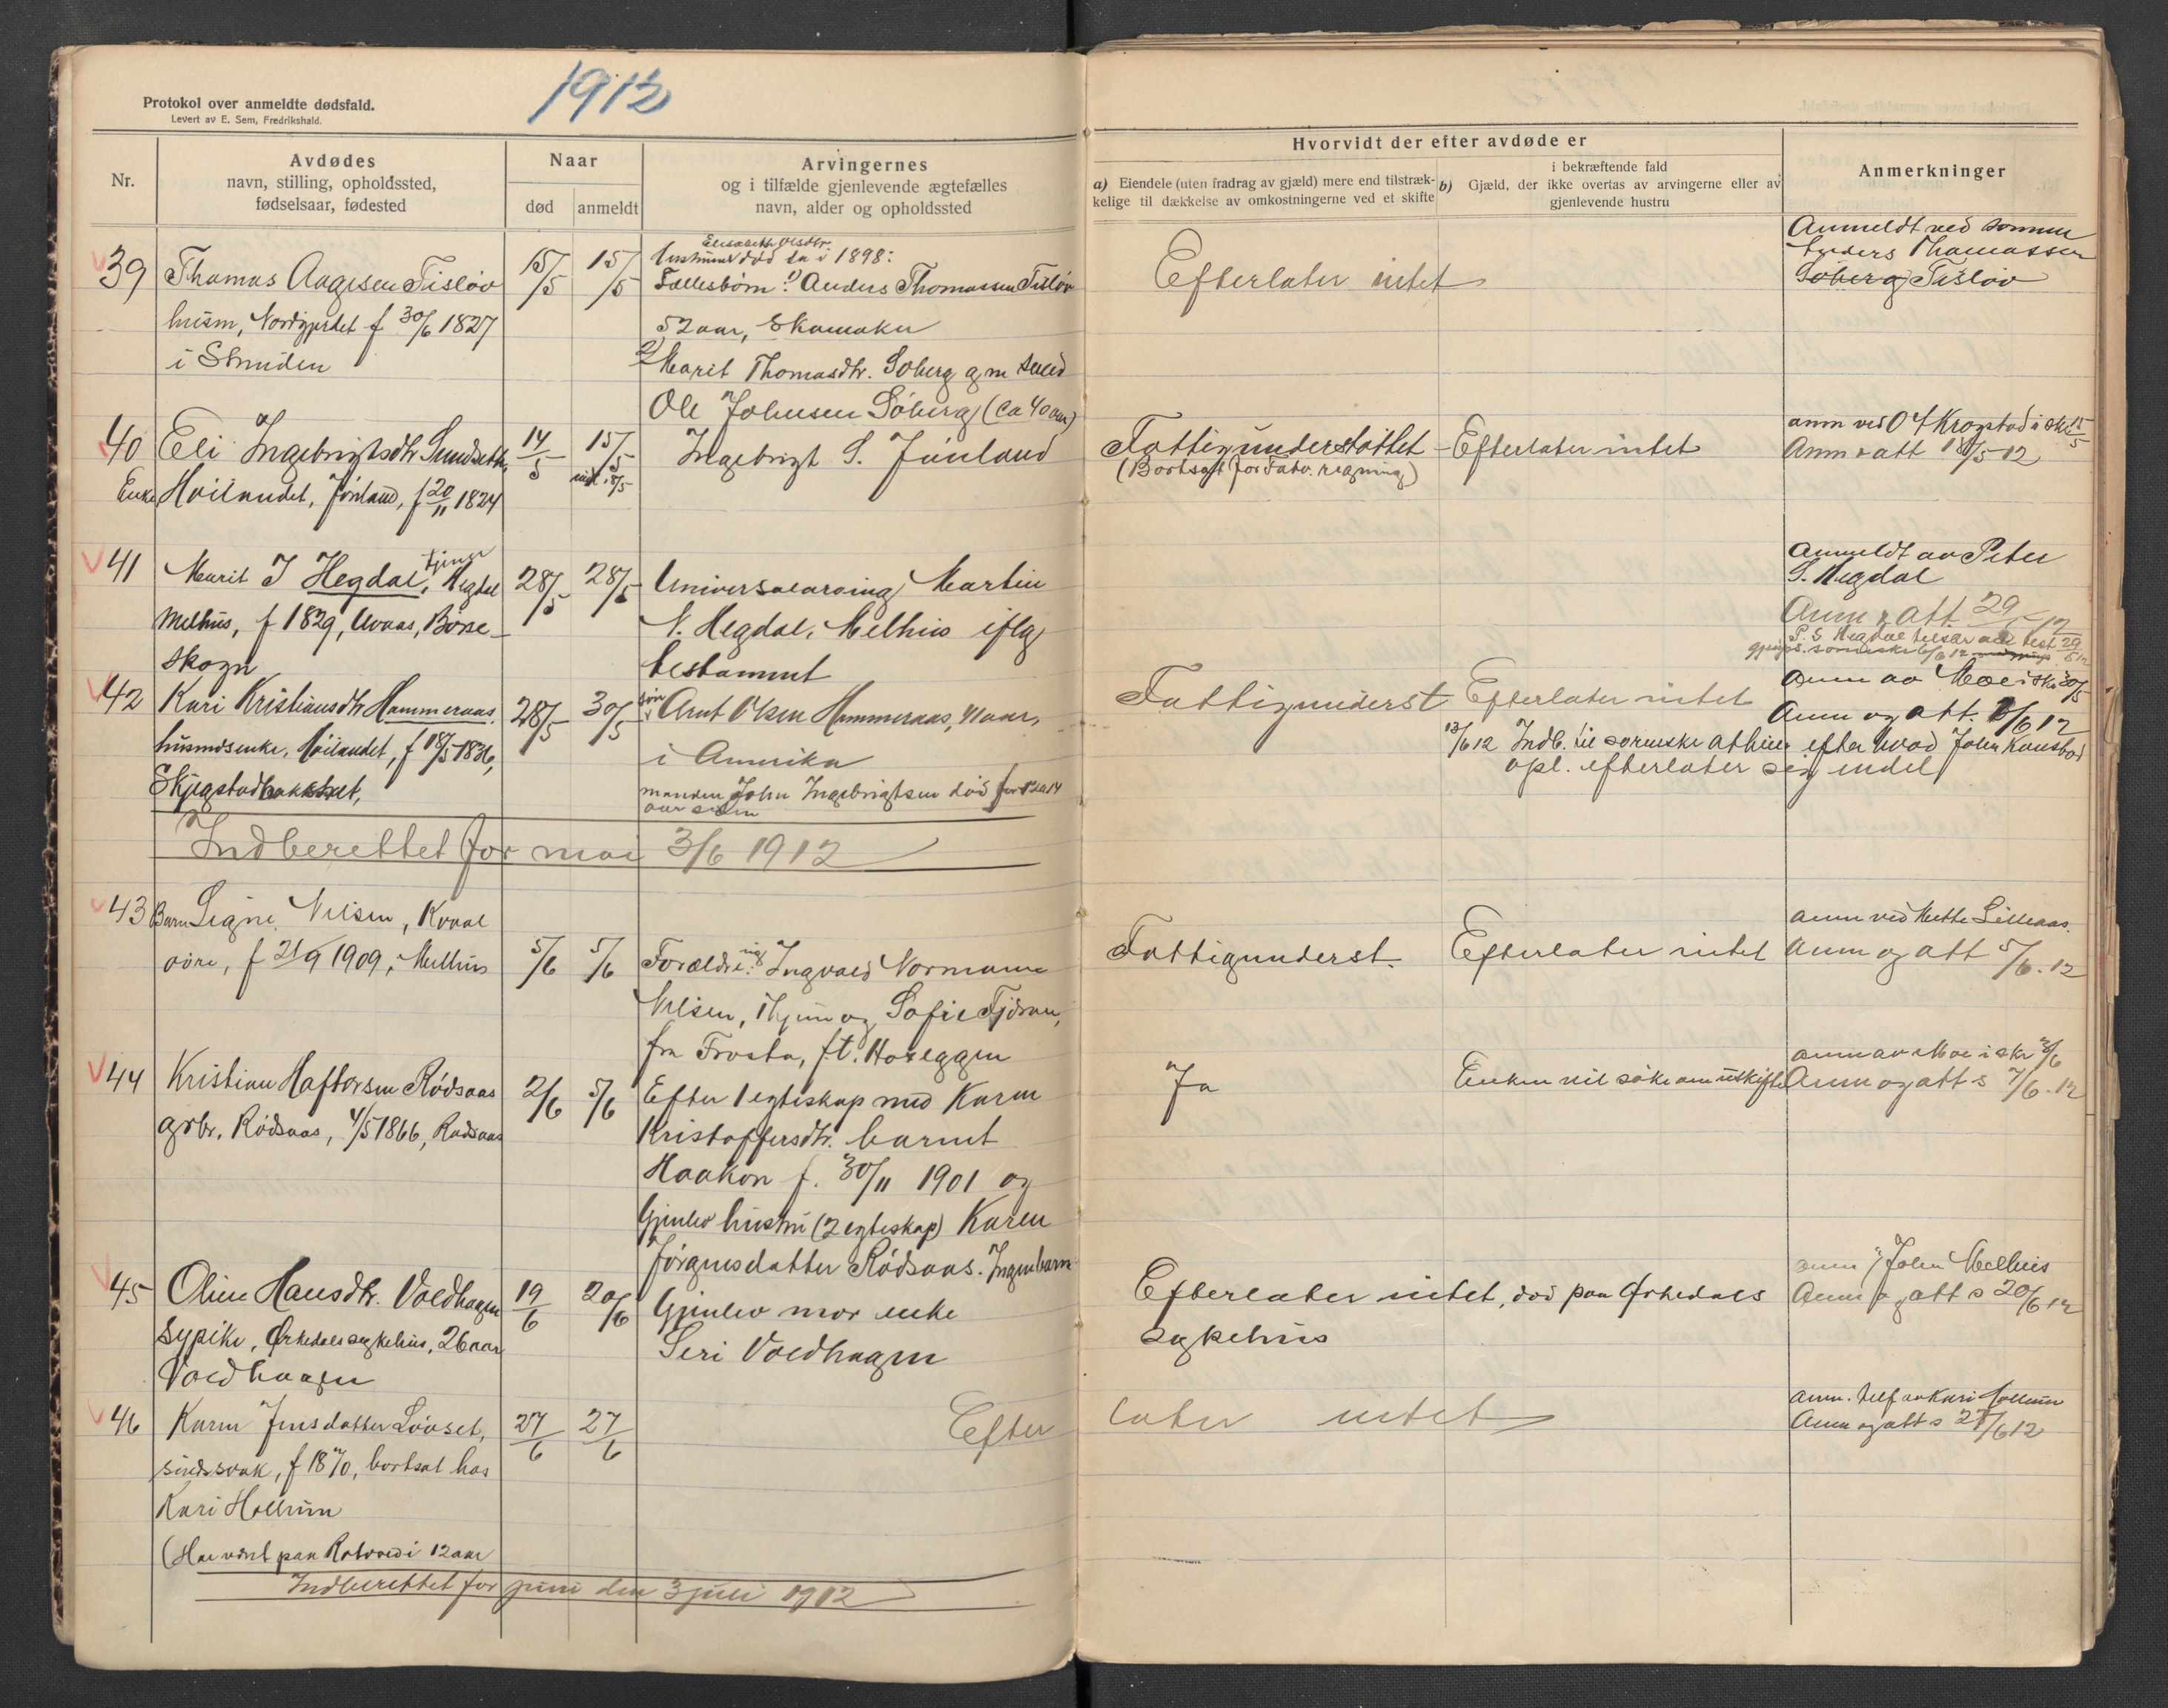 1912
Protokol over anmeldte dødsfald.
Levert av E. Sem, Fredrikshald.
Nr.
Avdødes
navn, stilling, opholdssted,
fødselsaar, fødested
Naar
død
anmeldt
Arvingernes
og i tilfælde gjenlevende ægtefælles
navn, alder og opholdssted
Hvorvidt der efter avdøde er
a) Eiendele (uten fradrag av gjæld) mere end tilstræk-
kelige til dækkelse av omkostningerne ved et skifte
i bekræftende fald
b) Gjæld, der ikke overtas av arvingerne eller av
gjenlevende hustru
Anmerkninger
39
Thomas Aagesen Tisløv
husm, Nordgjerdet f 30/6 1827
i
15/5
15/5
Elisabeth Olsdtr.
hustruen død ca i 1898:
Fællesbørn: 1) Anders Thomassen Tisløv
52 aar, Skamoken
2) Marit Thomasdtr. Søberg gm
Ole Johnsen Søberg (ca 40 aar)
Efterlater intet
Anmeldt ved sønnen
Anders Thomassen
Søberg Tisløv
40
Eli Ingebrigtsdtr
Enke Høilandet, f 20/11 1824
14/5
15/5
18/5
Ingebrigt S.
Fattigunderstøttet
(Bortsat for Fatv. regning)
Efterlater intet
anm ved O Krogstad i skr 15/5
Anm & att 18/5 12
41
Marit J Hegdal, Hegdal
Melhus, f 1829, Børse-
skogn
28/5
28/5
Universalarving Martin
N. Hegdal, Melhus iflg
testament
Anmeldt av Peter
S. Hegdal
Anm & att 29/5 12
42
Kari Kristiansdtr Hammeraas
husmdsenke, Høilandet, f 18/5 1836,
28/5
30/5
søn Arnt Olsen Hammeraas, 41 aar,
i Amerika
manden John Ingebrigtsen død for 12 a 14
aar siden
Fattigunderst
Efterlater intet
13/6 12 Indb. til sorenskr at hun efter hvad John
opl. efterlater sig endel
Anm av Moe i skr 30/5
Anm og att. /6 12
Indberettet for mai 3/6 1912
43
Barn Signe Nilsen, Kvaal
øvre, f 21/9 1909, Melhus
5/6
5/6
Forældre: ug Ingvald Normann
Nilsen, Thjem og Sofie
fra Frosta, f.t. Horeggen
Fattigunderst.
Efterlater intet
anm ved Mette Lilleaas.
Anm og att 5/6.12
44
Kristian Haftorsen Rödsaas
grbr. Rödsaas, 4/5 1866, Rödsaas
2/6
5/6
Efter 1 egteskap med Karen
Kristoffersdtr. barnet
Haakon f. 30/11 1901 og
Gjenlev hustru (2 egteskap) Karen
Jörgensdatter Rödsaas. Ingen barn
Ja
Enken vil söke om uskifte
anm av Moe i skr /6
Anm og att s 7/6.12
45
Oline Hansdtr. Voldhagen
sypike, Ørkedals sykehus, 26 aar
Voldhagen
19/6
20/6
Gjenlev mor enke
Siri Voldhagen
Efterlater intet, död paa Ørkedals
sykehus
anm John Melhus
Anm og att s 20/6 12
46
Karen Jensdatter Løvset,
sindssvak, f 1870, bortsat hos
Kari Hollum
(Har vært paa Rotvold i 12 aar
27/6
27/6
Efter later intet
anm. telf av Kari Hollum
Anm og att s 27/6 12
Indberettet for juni den 3 juli 1912